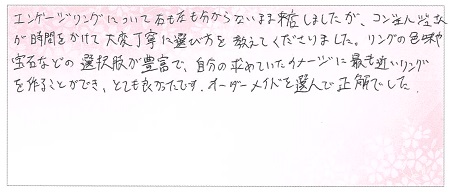 エンゲージリングについて右も左も分からないまま来店しましたが、コンシェルジュさん
が時間をかけて大変丁寧に選び方を教えてくださりました。リングの色味や
宝石などの選択肢が豊富で、自分の求めていたイメージに最も近いリング
を作ることができ、とても良かったです。オーダーメイドを選んで正解でした。